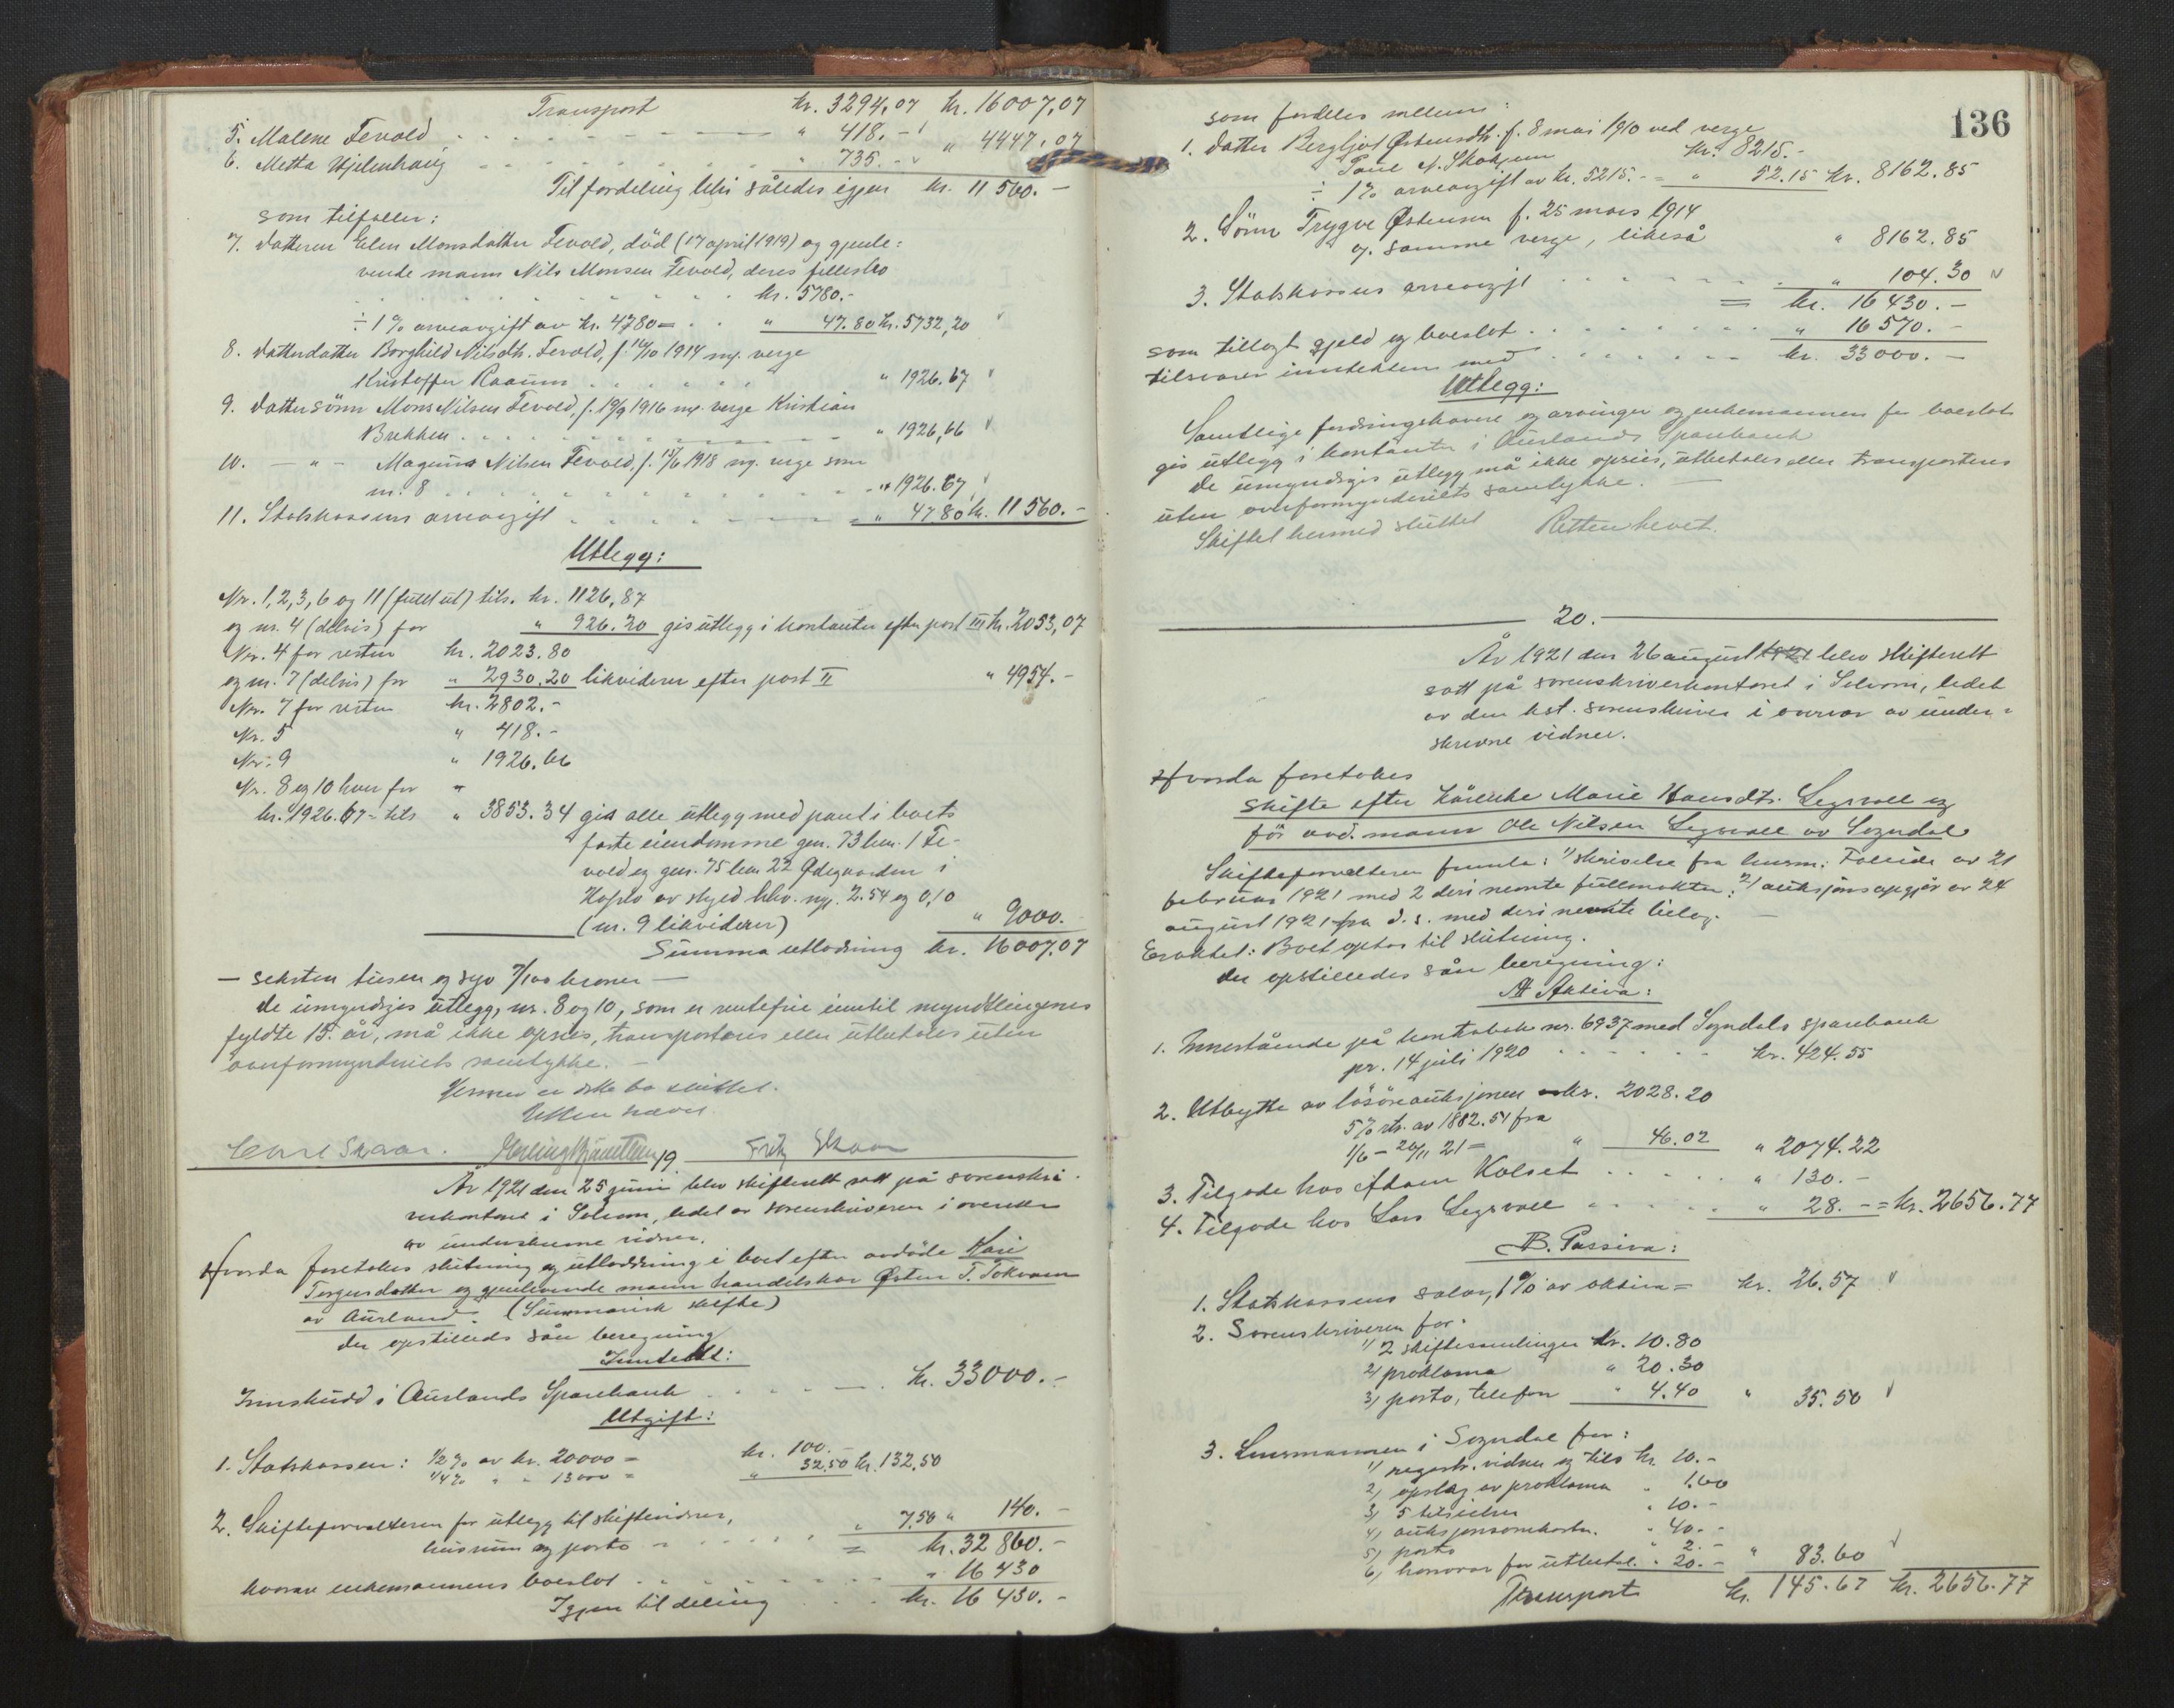 Transport kr. 3294,07 kr. 16007,07
5. Malene Fevold " 418.-
6. Metta Hjelmhaug " 735.- " 4447,07
Til fordeling blir således igjen kr. 11560.-
som tilfaller:
7. datteren Elen Monsdatter Fevold, død (17 april 1919) og gjenle-
vende mann Nils Monsen Fevold, deres fellesbo
kr. 5780.-
÷ 1% arveavgift av kr. 4780 = " 47.80 kr. 5732,20
8. datterdatter Borghild Nilsdtr. Fevold, f. 14/10 1914 ny. verge
Kristoffer Raaum " 1926.67
9. dattersønn Mons Nilsen Fevold, f. 19/9 1916 ny. verge Kristian
Brekken " 1926,66
10. - " - Magnus Nilsen Fevold, f. 15/6 1918 ny. verge som
nr. 8 " 1926.67
11. Statskassens arveavgift " 47.80 kr. 11560.-
Utlegg:
Nr. 1, 2, 3, 6 og 11 (fullt ut) tils. kr. 1126,87
og nr. 4 (delvis) for " 926.20 gis utlegg i kontanter efter post III kr. 2053,07
Nr. 4 for resten kr. 2023.80
og nr. 7 (delvis) for " 2930.20 likviderer efter post II " 4954.-
Nr. 7 for resten kr. 2802.-
Nr. 5 " 418.-
Nr. 9 " 1926.66
Nr. 8 og 10 hver for "
kr. 1926.67 = tils " 3853.34 gis alle utlegg med pant i boets
faste eiendomme gnr. 73 bnr. 1 Fe-
vold og gnr. 75 bnr. 22 Ødegaarden i
Hafslo av skyld hhv. my. 2.54 og 0,10
(nr. 9 likviderer) " 9000.
Summa utlodning kr. 16007.07
- seksten tusen og syv 7/100 kroner -
De umyndiges utlegg, nr. 8 og 10, som er rentefrie inntil myndlingenes
fyldte 15. år, må ikke opsies, transporteres eller utbetales uten
overformynderiets samtykke. -
Hermed er dette bo sluttet.
Retten hævet.
Carl Skaar. Fritz Skaar
19.
År 1921 den 25 juni blev skifterett satt på sorenskri-
verkontoret i Solvorn, ledet av sorenskriveren i overvær
av underskrevne vidner.
Hvorda foretokes slutning og utlodning i boet efter avdøde Kari
Torgersdatter og gjenlevende mann handelskar Østen T. Tokvam
av Aurland. (Summarisk skifte)
Der opstilleds sån beregning
Inntekt:
Innskudd i Aurlands Sparebank kr. 33000.-
Utgift:
1. Statskassen: 1/2% av kr. 20000 = kr. 100.-
1/4% " " 13000 = " 32.50 kr. 132,50
2. Skifteforvalteren for utlegg til skiftevidner,
husrum og porto " 7,50 " 140.-
= kr. 32860.-
hvorav enkemannens boeslot " 16430
Igjen til deling kr. 16430.-
136
som fordeles mellem:
1. Datter Bergljot Østensdtr. f. 8 mai 1910 ved verge
Paul N. Skahjem kr. 8215.-
÷ 1% arveavgift av kr. 5215.- = " 52.15 kr. 8162.85
2. Sønn Trygve Østensen f. 25 mars 1914
v. samme verge, likeså " 8162.85
3. Statskassens arveavgift " 104.30
= kr. 16430.-
som tillagt gjeld og boeslot " 16570.-
tilsvarer inntekten med kr. 33000.-
Utlegg:
Samtlige fordringshavere og arvinger og enkemannen for boeslot
gis utlegg i kontanter i Aurlands Sparebank
De umyndiges utlegg må ikke opsies, utbetales eller transporteres
uten overformynderiets samtykke. -
Skiftet hermed sluttet Retten hevet.
20.
År 1921 den 26 august 1921 blev skifterett
satt på sorenskriverkontoret i Solvorn, ledet
av den kst. sorenskriver i overvær av under-
skrevne vidner.
Hvorda foretokes
skifte efter Marie Hansdtr. Legrvoll og
før avd. mann Ole Nilsen Legrvoll av Sogndal
Skifteforvalteren fremla: 1) skrivelse fra lensm. Foleide av 21
februar 1921 med 2 deri nevnte fullmakter. 2) auksjonsopgjør av 24
august 1921 fra d. s. med deri nevnte bilag. -
Eraktet: Boet optas til slutning.
Der opstilledes sån beregning:
A Aktiva:
1. Innestående på kontrabok nr. 6937 med Sogndals sparebank
pr. 14 juli 1920 kr. 424.55
2. Utbytte av løsøreauksjonen kr. 2028.20
5% rts. av 1882.51 fra
1/6 - 20/11 21 = " 46.02 " 2074.22
3. Tilgode hos Adam Kolset " 130.-
4. Tilgode hos Lars Legrvoll " 28.- = kr. 2656.77
B. Passiva:
1. Statskassens salær, 1% av aktiva = kr. 26.57
2. Sorenskriveren for:
1) 2 skiftesamlinger kr. 10.80
2) proklama " 20.30
3) porto, telefon " 4.40 " 35.50
3. Lensmannen i Sogndal for:
1) registr. vidner og tils kr. 10.-
2) opslag av proklama " 1.60
3) 5 tilsielser " 10.-
4) auksjonsomkostn. " 40.-
5) porto " 2.-
6) honorar for utbetal. " 20.- " 83.60
Transport kr. 145.67 kr. 2656.77